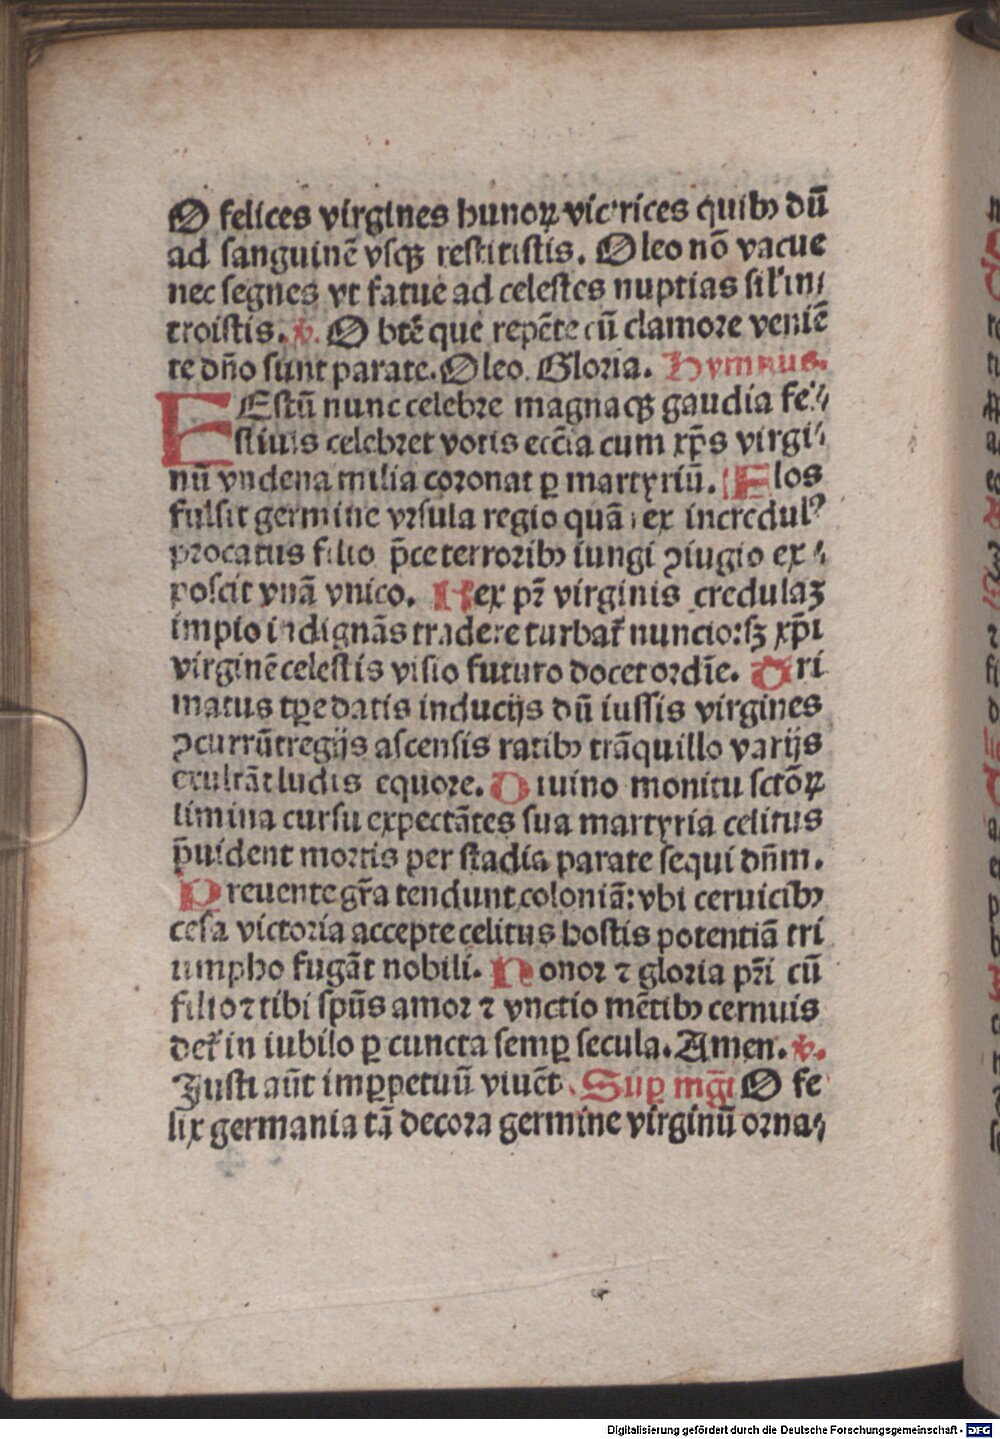 O felices virgines hunoꝝ victrices quibꝰ dū
ad sanguinē vsqꝫ restitistis. Oleo nō vacue
nec segnes vt fatue ad celestes nuptias sil'in⸗
troistis. ℣. O btē que repēte cū clamore veniē
te dño sunt parate. Oleo. Gloria. Hymnus.
FEstū nunc celebre magnaqꝫ gaudia fe⸗
stiuis celebret votis ecc̄ia cum xp̄s virgi⸗
nū vndena milia coronat ꝑ martyriū. Flos
fulsit germine vrsula regio quā rex incredulꝰ
procatus filio p̄ce terroribꝰ iungi ꝯiugio ex⸗
poscit vnā vnico. Rex pr̄ virginis credulaꝫ
impio indignās tradere turbat᷑ nuncio: sꝫ xp̄i
virginē celestis visio futuro docet ordīe. Pri
matus tꝑe datis inducijs dū iussis virgines
ꝯcurrūt regijs ascensis ratibꝰ trāquillo varijs
exultāt ludis equore. Diuino monitu sctōꝝ
limina cursu expectātes sua martyria celitus
p̄uident mortis per stadia parate sequi dn̄m.
Preuente gr̄a tendunt coloniā: vbi ceruicibꝰ
cesa victoria accepte celitus hostis potentiā tri
umpho fugāt nobili. Honor ⁊ gloria pr̄i cū
filio ⁊ tibi sp̄us amor ⁊ vnctio mētibꝰ cernuis
det᷑ in iubilo ꝑ cuncta semꝑ secula. Amen. ℣.
Justi aūt imꝑpetuū viuēt Suꝑ mgt̄ O fe
lix germania tā decora germine virginū orna⸗
Digitalisierung gefördert durch die Deutsche Forschungsgemeinschaft - DFG